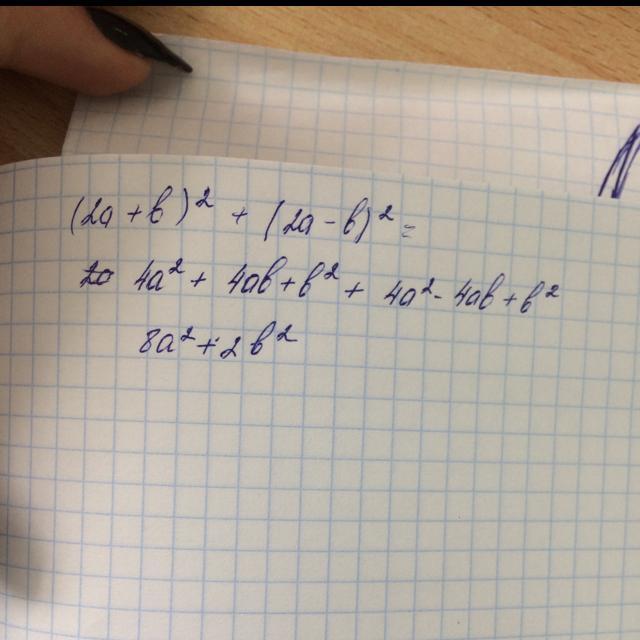 (2a + b)² + (2a - b)² =
4a² + 4ab + b² + 4a² - 4ab + b²
8a² + 2b²